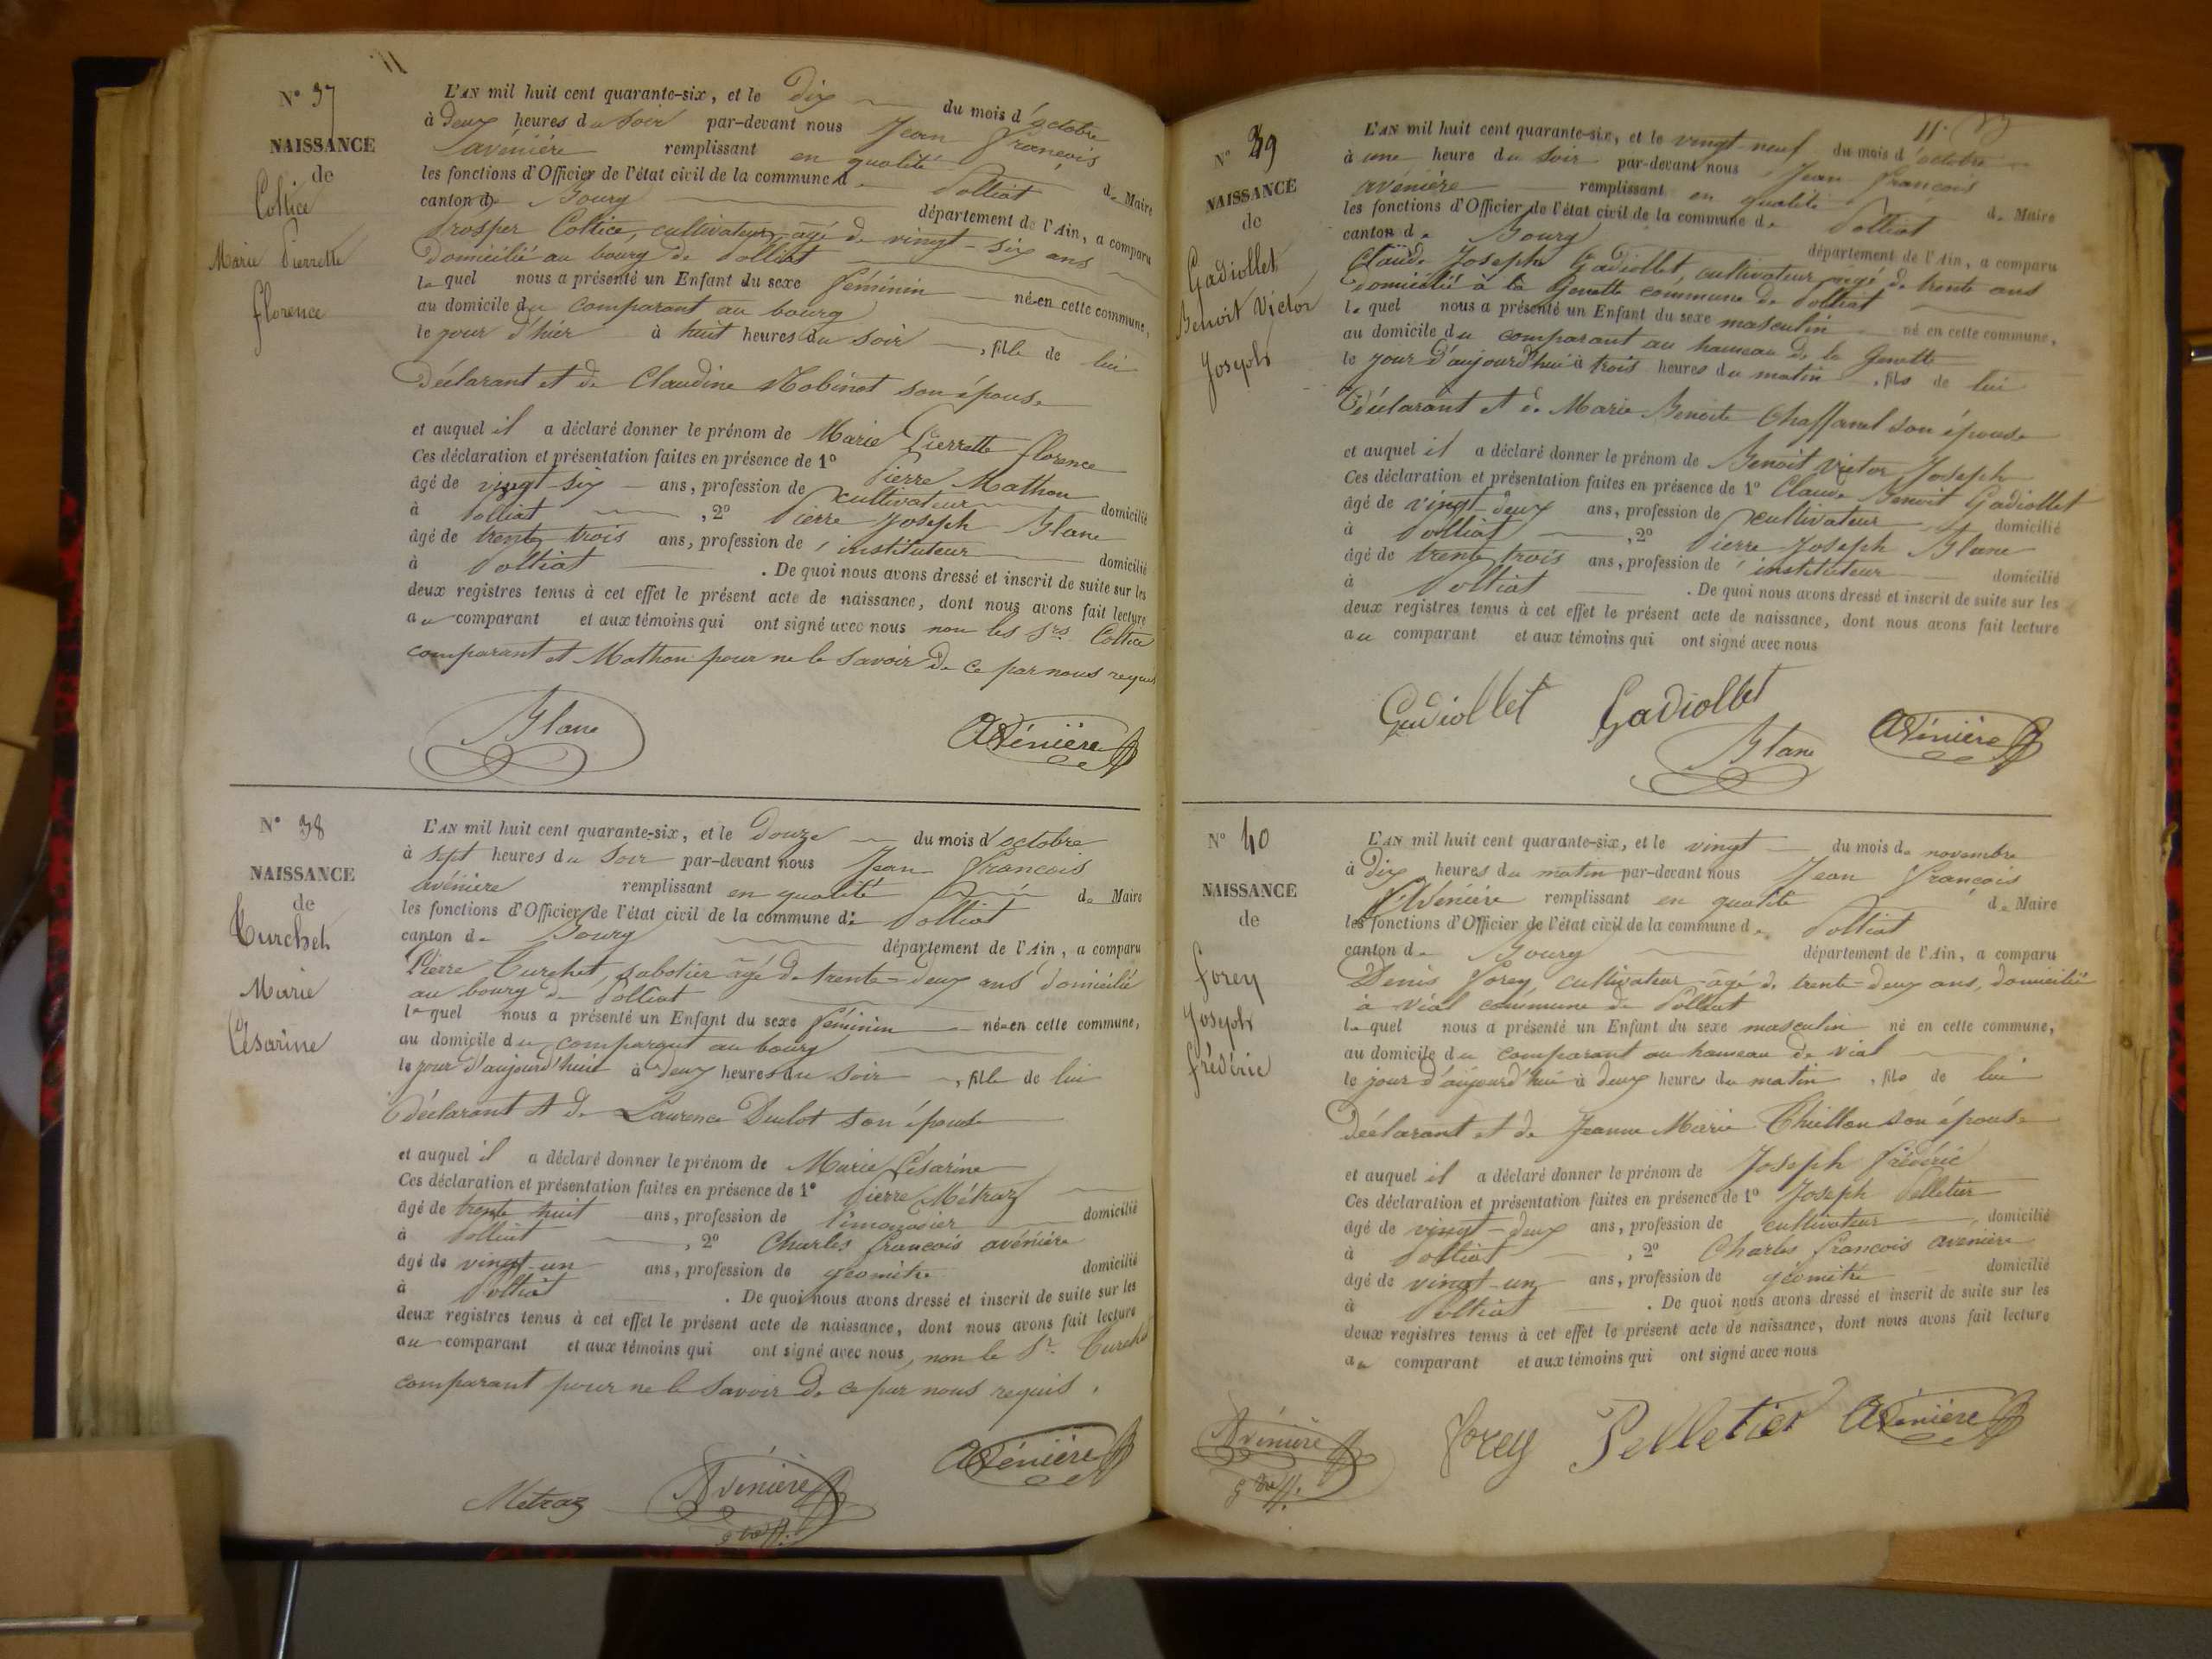 11
N° 37
NAISSANCE
de
Collice
Marie Pierrette
florence
L'AN mil huit cent quarante-six, et le Dix du mois d'octobre
à Deux heures du Soir par-devant nous Jean François
avénière remplissant en qualité de Maire
les fonctions d'Officier de l'état civil de la commune de Polliat
canton de Bourg département de l'Ain, a comparu
Prosper Collice, cultivateur, agé de vingt-six ans
Domicilié au bourg de Polliat
lequel nous a présenté un Enfant du sexe féminin née en cette commune,
au domicile du comparant au bourg
le jour d'hier à huit heures du soir, fille de lui
Déclarant et de Claudine Robinot son épouse
et auquel il a déclaré donner le prénom de Marie Pierrette florence
Ces déclaration et présentation faites en présence de 1° Pierre Mathon
âgé de vingt-six ans, profession de cultivateur domicilié
à Polliat, 2° Pierre Joseph Blanc
âgé de trente trois ans, profession de instituteur domicilié
à Polliat. De quoi nous avons dressé et inscrit de suite sur les
deux registres tenus à cet effet le présent acte de naissance, dont nous avons fait lecture
au comparant et aux témoins qui ont signé avec nous non les Srs Collice
comparant et Mathon pour ne le savoir de ce par nous requis
Blanc Avénière
N° 38
NAISSANCE
de
Curchet
Marie
Césarine
L'AN mil huit cent quarante-six, et le Douze du mois d'octobre
à sept heures du Soir par-devant nous Jean françois
avénière remplissant en qualité de Maire
les fonctions d'Officier de l'état civil de la commune de Polliat
canton de Bourg département de l'Ain, a comparu
Pierre Curchet, sabotier âgé de trente-deux ans domicilié
au bourg de Polliat
lequel nous a présenté un Enfant du sexe féminin née en cette commune,
au domicile du comparant au bourg
le jour d'aujourd'hui à deux heures du soir, fille de lui
déclarant et de Laurence Duclot son épouse
et auquel il a déclaré donner le prénom de Marie Césarine
Ces déclaration et présentation faites en présence de 1° Pierre Métraz
âgé de trente huit ans, profession de limonadier domicilié
à Polliat, 2° Charles françois avénière
âgé de vingt-un ans, profession de géomètre domicilié
à Polliat. De quoi nous avons dressé et inscrit de suite sur les
deux registres tenus à cet effet le présent acte de naissance, dont nous avons fait lecture
au comparant et aux témoins qui ont signé avec nous, non le Sr. Curchet
comparant pour ne le savoir de ce par nous requis.
Metraz Avénière Avénière
11.
N° 39
NAISSANCE
de
Gadiollet
Benoit Victor
Joseph
L'AN mil huit cent quarante-six, et le vingt-neuf du mois d'octobre
à une heure du soir par-devant nous Jean François
avénière remplissant en qualité de Maire
les fonctions d'Officier de l'état civil de la commune de Polliat
canton de Bourg département de l'Ain, a comparu
Claude Joseph Gadiollet, cultivateur, agé de trente ans
Domicilié à la Genette commune de Polliat
lequel nous a présenté un Enfant du sexe masculin né en cette commune,
au domicile du comparant au hameau de la Genette
le jour d'aujourd'hui à trois heures du matin, fils de lui
Déclarant et de Marie Benoite Chaffanel son épouse
et auquel il a déclaré donner le prénom de Benoit Victor Joseph
Ces déclaration et présentation faites en présence de 1° Claude Benoit Gadiollet
âgé de vingt-deux ans, profession de cultivateur domicilié
à Polliat, 2° Pierre Joseph Blanc
âgé de trente trois ans, profession de instituteur domicilié
à Polliat. De quoi nous avons dressé et inscrit de suite sur les
deux registres tenus à cet effet le présent acte de naissance, dont nous avons fait lecture
au comparant et aux témoins qui ont signé avec nous
Gadiollet Gadiollet
Blanc Avénière
N° 40
NAISSANCE
de
forey
Joseph
frédéric
L'AN mil huit cent quarante-six, et le vingt du mois de novembre
à Dix heures du matin par-devant nous Jean françois
Avénière remplissant en qualité de Maire
les fonctions d'Officier de l'état civil de la commune de Polliat
canton de Bourg département de l'Ain, a comparu
Denis forey cultivateur âgé de trente-deux ans, domicilié
à Vial commune de Polliat
lequel nous a présenté un Enfant du sexe masculin né en cette commune,
au domicile du comparant au hameau de vial
le jour d'aujourd'hui à deux heures du matin, fils de lui
Déclarant et de Jeanne Marie Thillon son épouse
et auquel il a déclaré donner le prénom de Joseph frédéric
Ces déclaration et présentation faites en présence de 1° Joseph Pelletier
âgé de vingt-deux ans, profession de cultivateur, domicilié
à Polliat, 2° Charles françois avenière
âgé de vingt-un ans, profession de géomètre domicilié
à Polliat. De quoi nous avons dressé et inscrit de suite sur les
deux registres tenus à cet effet le présent acte de naissance, dont nous avons fait lecture
au comparant et aux témoins qui ont signé avec nous
Avénière forey Pelletier Avénière